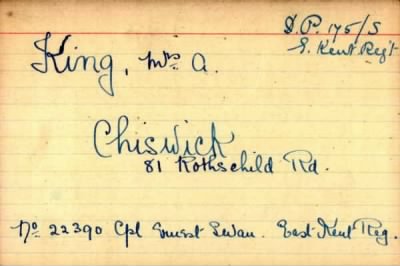 D.P. 175/S
E. Kent Reg't
King, Mrs A.
Chiswick
81 Rothschild Rd.
No 22390 Cpl Ernest Swan. East Kent Reg.